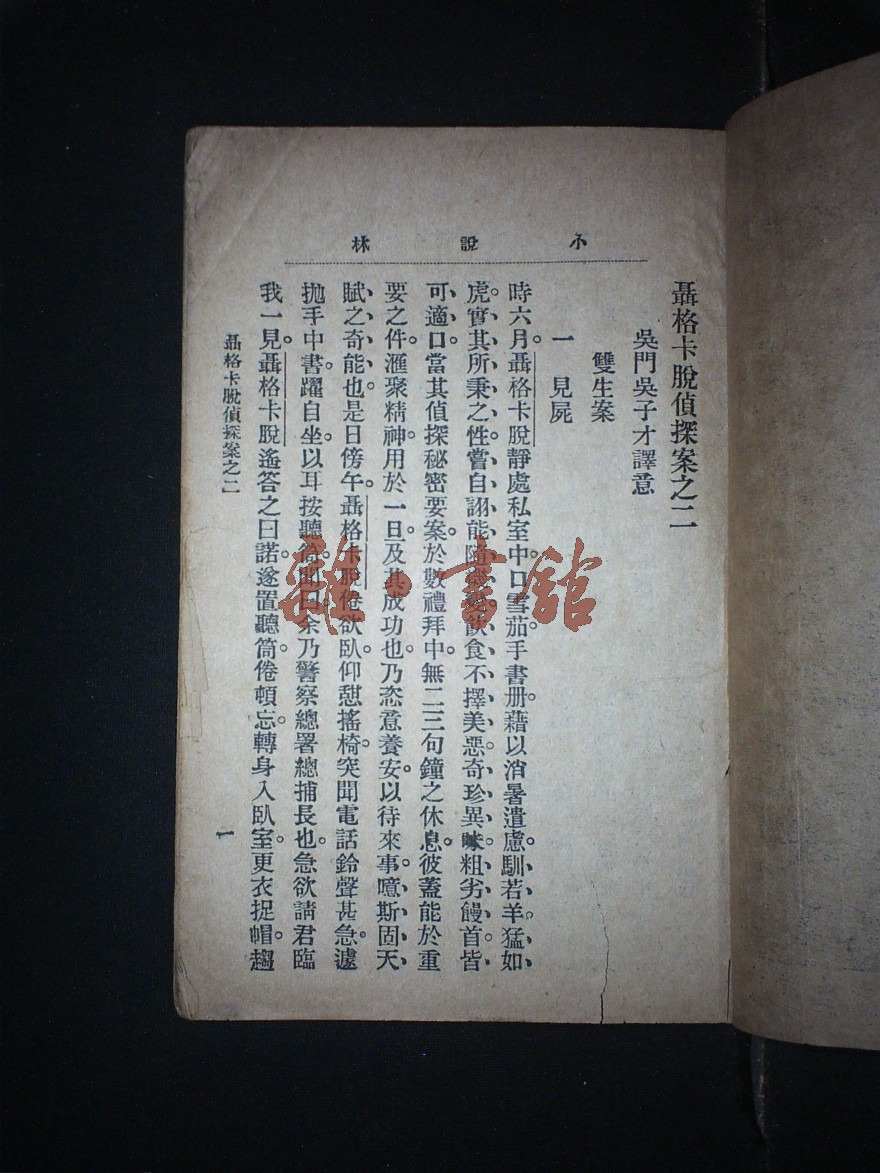 小說林
聶格卡脫偵探案之二
吳門吳子才譯意
雙生案
一 見屍
時六月。聶格卡脫靜處私室中。口雪茄。手書册。藉以消暑遣慮。馴若羊。猛如
虎。實其所秉之性。嘗自詡能隨飲食不擇美惡。奇珍異味。粗劣饅首。皆
可適口。當其偵探秘密要案。於數禮拜中。無二三句鐘之休息。彼蓋能於重
要之件。滙聚精神。用於一旦。及其成功也。乃恣意養安。以待來事。噫。斯固天
賦之奇能也。是日傍午。聶格卡脫倦欲臥。仰憇搖椅。突聞電話鈴聲甚急。遽
拋手中書。躍自坐。以耳按聽筒。聞曰。余乃警察總署總捕長也。急欲請君臨
我一見。聶格卡脫遙答之曰諾。遂置聽筒。倦頓忘。轉身入臥室。更衣捉帽。趨
聶格卡脫偵探案之二
一
雜·書館